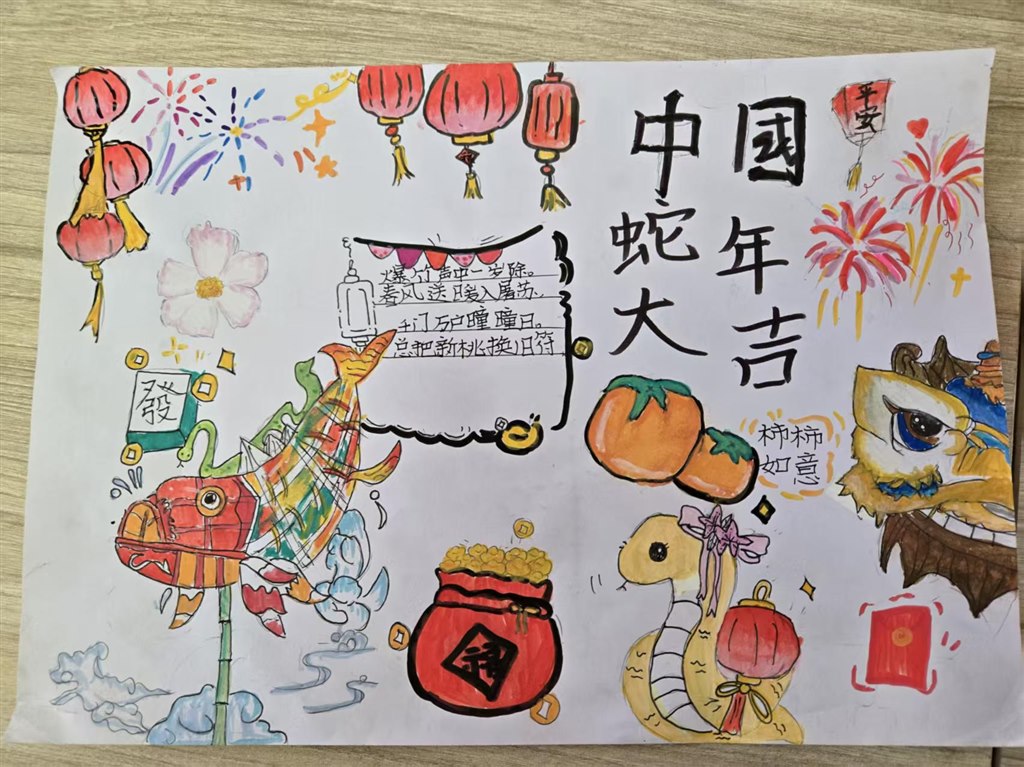 中國
蛇年
大吉
平安
爆竹声中一岁除。
春风送日暖入屠苏.
千门万户曈曈日。
总把新桃换旧符
發
柿柿
如意
福